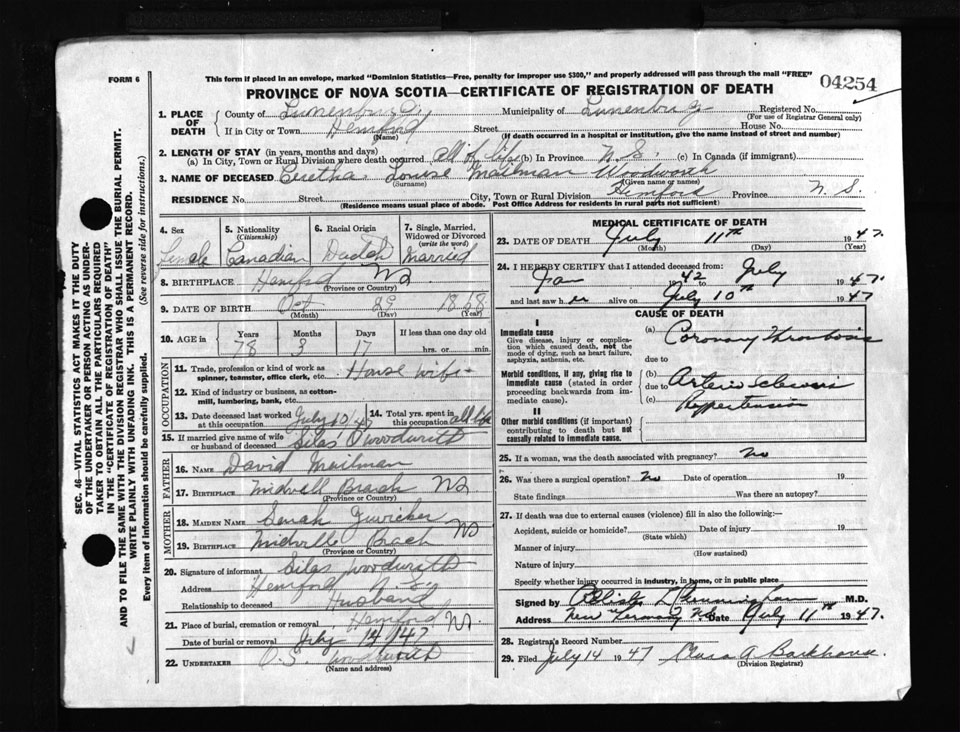 FORM 6
This form if placed in an envelope, marked "Dominion Statistics—Free, penalty for improper use $300," and properly addressed will pass through the mail "FREE"
PROVINCE OF NOVA SCOTIA—CERTIFICATE OF REGISTRATION OF DEATH
04254
1. PLACE OF DEATH County of Lunenburg Municipality of Lunenburg Registered No.
(For use of Registrar General only)
If in City or Town Hemford Street House No.
(Name) (If death occurred in a hospital or institution, give the name instead of street and number)
2. LENGTH OF STAY (in years, months and days)
(a) In City, Town or Rural Division where death occurred all of life (b) In Province N.S. (c) In Canada (if immigrant)
3. NAME OF DECEASED Louise Mailman Woodworth
(Surname) (Given name or names)
RESIDENCE No. Street City, Town or Rural Division Hemford Province N.S.
(Residence means usual place of abode. Post Office Address for residents in rural parts not sufficient)
4. Sex 5. Nationality (Citizenship) 6. Racial Origin 7. Single, Married, Widowed or Divorced (write the word)
Female Canadian Dutch Married
8. BIRTHPLACE Hemford NS
(Province or Country)
9. DATE OF BIRTH Oct 29 1868
(Month) (Day) (Year)
10. AGE in Years Months Days If less than one day old
78 3 17 hrs. or min.
OCCUPATION
11. Trade, profession or kind of work as spinner, teamster, office clerk, etc. House wife
12. Kind of industry or business, as cotton-mill, lumbering, bank, etc.
13. Date deceased last worked at this occupation July 10 47 14. Total yrs. spent in this occupation all life
15. If married give name of wife or husband of deceased Silas Woodworth
FATHER
16. NAME David Mailman
17. BIRTHPLACE NS
(Province or Country)
MOTHER
18. MAIDEN NAME Sarah Zwicker
19. BIRTHPLACE NS
(Province or Country)
20. Signature of informant Silas Woodworth
Address Hemford N.S.
Relationship to deceased Husband
21. Place of burial, cremation or removal Hemford N.S.
Date of burial or removal July 14 1947
22. UNDERTAKER O.S. Woodworth
(Name and address)
MEDICAL CERTIFICATE OF DEATH
23. DATE OF DEATH July 11th 1947
(Month) (Day) (Year)
24. I HEREBY CERTIFY that I attended deceased from:
Jan 1942 to July 1947
and last saw her alive on July 10th 1947
CAUSE OF DEATH
I
Immediate cause (a) Coronary Thrombosis
Give disease, injury or complication which caused death, not the mode of dying, such as heart failure, asphyxia, asthenia, etc. due to
Morbid conditions, if any, giving rise to immediate cause (stated in order proceeding backwards from immediate cause). (b) due to Arterio Sclerosis
(c) Hypertension
II
Other morbid conditions (if important) contributing to death but not causally related to immediate cause.
25. If a woman, was the death associated with pregnancy? No
26. Was there a surgical operation? No Date of operation 19
State findings Was there an autopsy?
27. If death was due to external causes (violence) fill in also the following:—
Accident, suicide or homicide? Date of injury 19
(State which)
Manner of injury
(How sustained)
Nature of injury
Specify whether injury occurred in industry, in home, or in public place
Signed by Cunningham M.D.
Address New Germany NS Date July 11th 1947.
28. Registrar's Record Number
29. Filed July 14 1947 Clara A Backhouse.
(Division Registrar)
SEC. 46—VITAL STATISTICS ACT MAKES IT THE DUTY
OF THE UNDERTAKER OR PERSON ACTING AS UNDERTAKER TO OBTAIN ALL THE PARTICULARS REQUIRED
IN THE "CERTIFICATE OF REGISTRATION OF DEATH"
AND TO FILE THE SAME WITH THE DIVISION REGISTRAR WHO SHALL ISSUE THE BURIAL PERMIT.
WRITE PLAINLY WITH UNFADING INK. THIS IS A PERMANENT RECORD.
Every item of information should be carefully supplied. (See reverse side for instructions.)